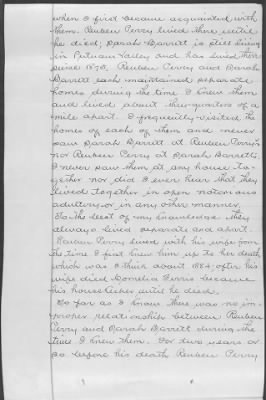 when I first became acquainted with
them. Reuben Perry lived there until
he died; Sarah Barrett is still living
in Putnam Valley and has lived there
since 1870. Reuben Perry and Sarah
Barrett each maintained separate
homes during the time I knew them
and lived about three-quarters of a
mile apart. I frequently visited the
homes of each of them and never
saw Sarah Barrett at Reuben Perry's
nor Reuben Perry at Sarah Barrett's
I never saw them at any house to-
gether nor did I ever hear that they
lived together in open notorious
adultery or in any other manner.
To the best of my knowledge they
always lived separate and apart.
Reuben Perry lived with his wife from
the time I first knew him up to her death
which was I think about 1884 after his
wife died Cornelia Ferris became
his housekeeper until he died.
So far as I know there was no im-
proper relationship between Reuben
Perry and Sarah Barrett during the
time I knew them. For two years or
so before his death Reuben Perry